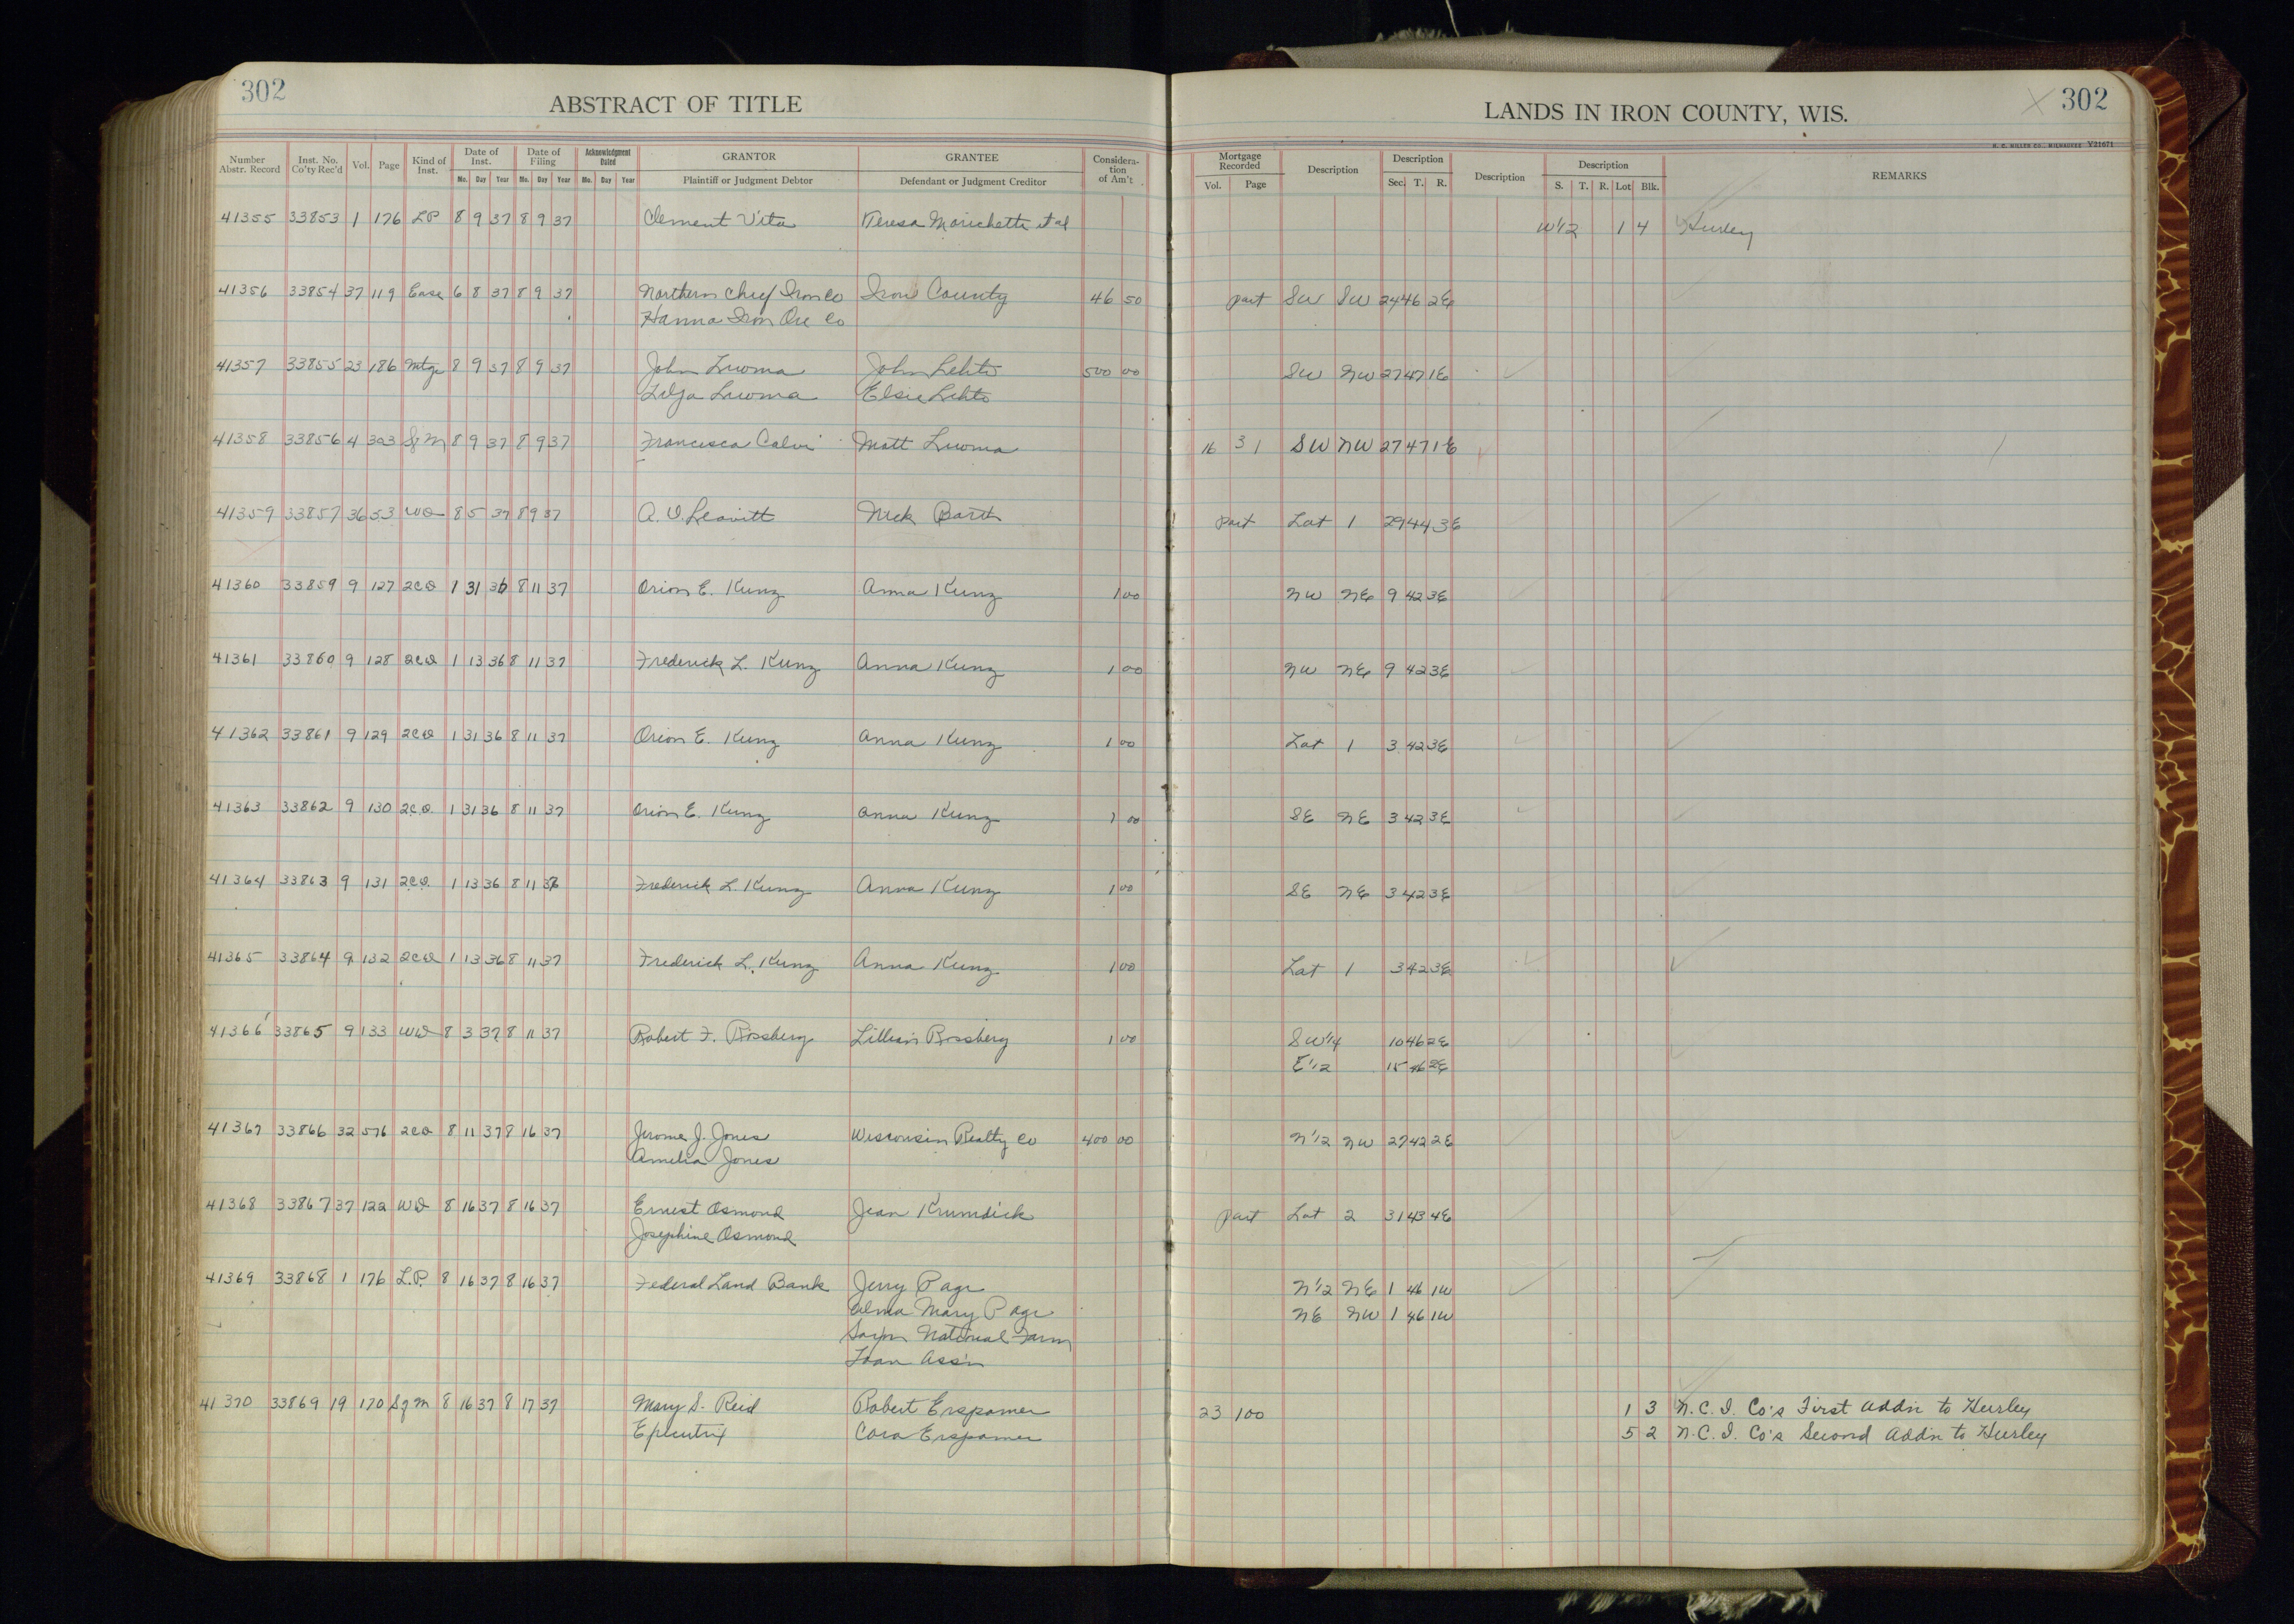 302
ABSTRACT OF TITLE
LANDS IN IRON COUNTY, WIS.
302
H. C. MILLER CO., MILWAUKEE V21671
Number Abstr. Record | Inst. No. Co'ty Rec'd | Vol. | Page | Kind of Inst. | Date of Inst. Mo. Day Year | Date of Filing Mo. Day Year | Acknowledgment Dated Mo. Day Year | GRANTOR Plaintiff or Judgment Debtor | GRANTEE Defendant or Judgment Creditor | Consideration of Am't | Mortgage Recorded Vol. Page | Description | Description Sec. T. R. | Description | Description S. T. R. Lot Blk. | REMARKS
41355 33853 1 176 LP 8 9 37 8 9 37 Clement Vita Teresa Morichetti et al W1/2 1 4 Hurley
41356 33854 37 119 Ease 6 8 37 8 9 37 Northern Chief Iron Co Iron County 46 50 part SW SW 24 46 2E
Hanna Iron Ore Co
41357 33855 23 186 Mtge 8 9 37 8 9 37 John Luoma John Lehto 500 00 SW NW 27 47 1E
Lilja Luoma Elsie Lehto
41358 33856 4 323 Sg M 8 9 37 8 9 37 Francesca Calvi Matt Luoma 16 31 SW NW 27 47 1E
41359 33857 36 53 WD 8 5 37 8 9 37 A. V. Leavitt Nick Barth part Lot 1 29 44 3E
41360 33859 9 127 2CD 1 31 36 8 11 37 Orion E. Kunz Anna Kunz 1 00 NW NE 9 42 3E
41361 33860 9 128 2CD 1 13 36 8 11 37 Frederick L. Kunz Anna Kunz 1 00 NW NE 9 42 3E
41362 33861 9 129 2CD 1 31 36 8 11 37 Orion E. Kunz Anna Kunz 1 00 Lot 1 3 42 3E
41363 33862 9 130 2CD 1 31 36 8 11 37 Orion E. Kunz Anna Kunz 1 00 SE NE 3 42 3E
41364 33863 9 131 2CD 1 13 36 8 11 37 Frederick L. Kunz Anna Kunz 1 00 SE NE 3 42 3E
41365 33864 9 132 2CD 1 13 36 8 11 37 Frederick L. Kunz Anna Kunz 1 00 Lot 1 3 42 3E
41366 33865 9 133 WD 8 3 37 8 11 37 Robert F. Rossberg Lillian Rossberg 1 00 SW1/4 10 46 2E
E1/2 15 46 2E
41367 33866 32 576 2CD 8 11 37 8 16 37 Jerome J. Jones Wisconsin Realty Co 400 00 N1/2 NW 27 42 2E
Amelia Jones
41368 33867 37 122 WD 8 16 37 8 16 37 Ernest Osmond Jean Krumdick part Lot 2 31 43 4E
Josephine Osmond
41369 33868 1 176 L.P. 8 16 37 8 16 37 Federal Land Bank Jerry Page N1/2 NE 1 46 1W
Alma Mary Page NE NW 1 46 1W
Saxon National Farm
Loan Ass'n
41370 33869 19 170 Sg M 8 16 37 8 17 37 Mary S. Reid Robert Erspamer 23 100 1 3 N.C.I. Co's First Addn to Hurley
Executrix Cora Erspamer 5 2 N.C.I. Co's Second Addn to Hurley